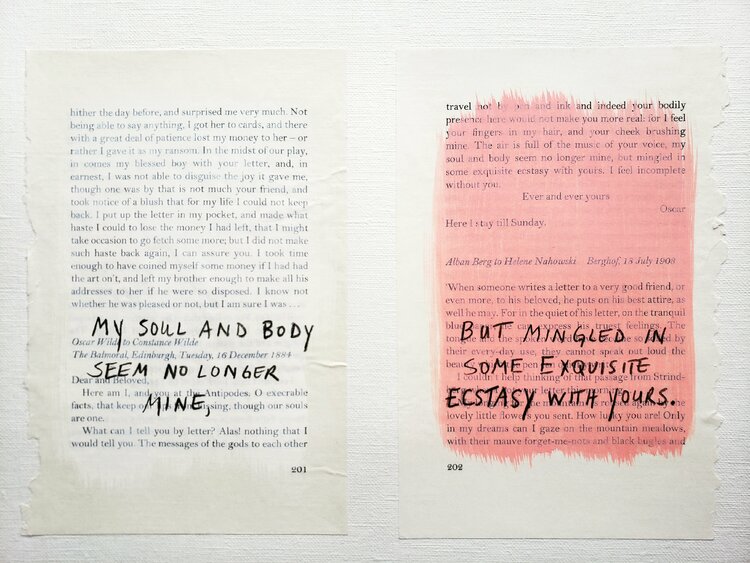 hither the day before, and surprised me very much. Not
being able to say anything, I got her to cards, and there
with a great deal of patience lost my money to her – or
rather I gave it as my ransom. In the midst of our play,
in comes my blessed boy with your letter, and, in
earnest, I was not able to disguise the joy it gave me,
though one was by that is not much your friend, and
took notice of a blush that for my life I could not keep
back. I put up the letter in my pocket, and made what
haste I could to lose the money I had left, that I might
take occasion to go fetch some more; but I did not make
such haste back again, I can assure you. I took time
enough to have coined myself some money if I had had
the art on't, and left my brother enough to make all his
addresses to her if he were so disposed. I know not
whether he was pleased or not, but I am sure I was ...
MY SOUL AND BODY
Oscar Wilde to Constance Wilde
The Balmoral, Edinburgh, Tuesday, 16 December 1884
SEEM NO LONGER
Dear and Beloved,
MINE,
Here am I, and you at the Antipodes. O execrable
facts, that keep our kissing, though our souls
are one.
What can I tell you by letter? Alas! nothing that I
would tell you. The messages of the gods to each other
201
travel not by pen and ink and indeed your bodily
presence here would not make you more real: for I feel
your fingers in my hair, and your cheek brushing
mine. The air is full of the music of your voice, my
soul and body seem no longer mine, but mingled in
some exquisite ecstasy with yours. I feel incomplete
without you.
Ever and ever yours
Oscar
Here I stay till Sunday.
Alban Berg to Helene Nahowski Berghof, 18 July 1908
'When someone writes a letter to a very good friend, or
even more, to his beloved, he puts on his best attire, as
well he may. For in the quiet of his letter, on the tranquil
blue express his truest feelings. The
BUT MINGLED IN
tongue and the by
their every-day use, they cannot speak out loud the
SOME EXQUISITE
pen
I couldn't help thinking of that passage from Strind-
letter this morning
ECSTASY WITH YOURS.
lovely little flowers you sent. How lucky you are! Only
in my dreams can I gaze on the mountain meadows,
with their mauve forget-me-nots and black bugles and
202